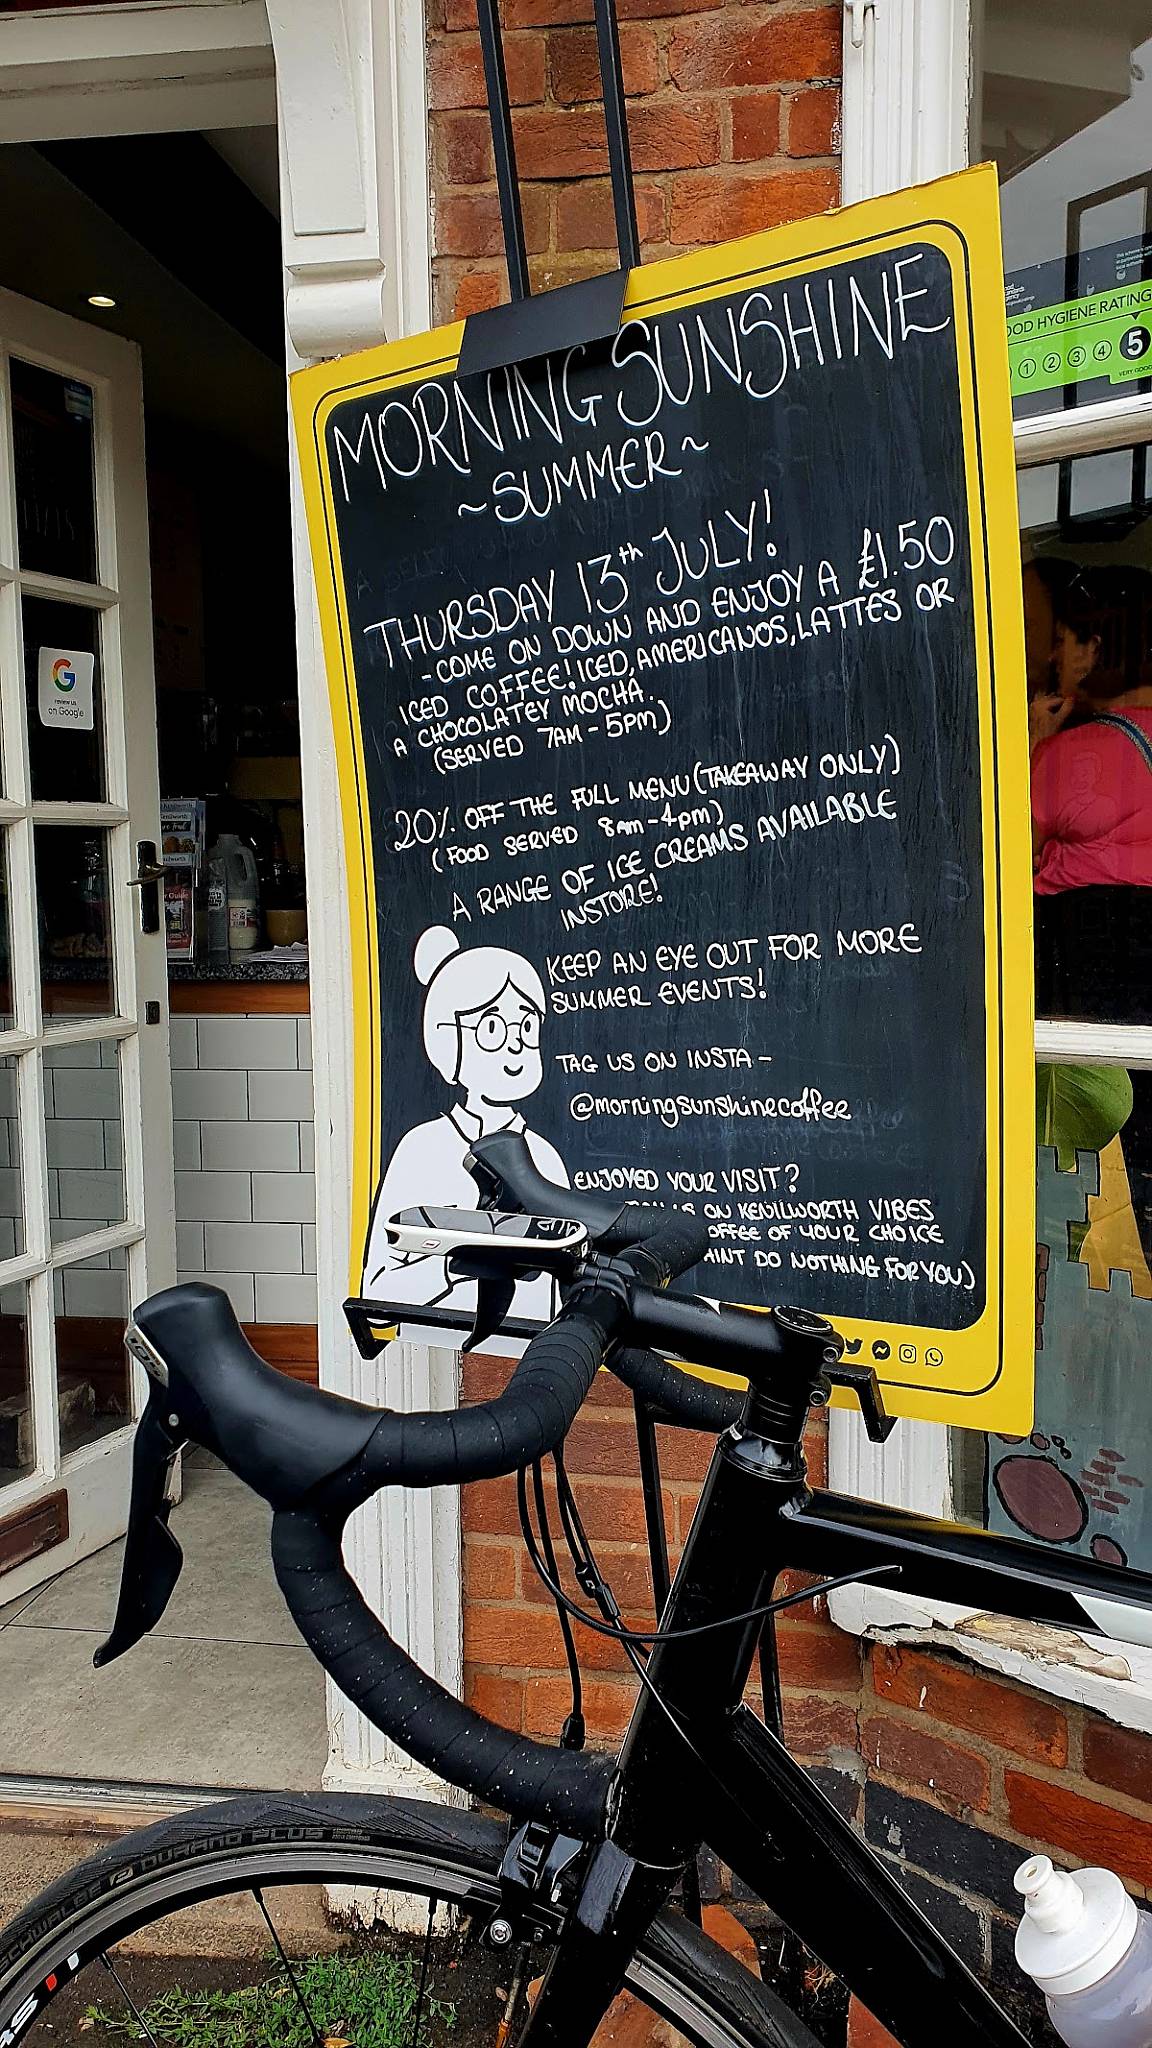 MORNING SUNSHINE
~SUMMER~
THURSDAY 13th JULY!
-COME ON DOWN AND ENJOY A £1.50
ICED COFFEE! ICED, AMERICANOS, LATTES OR
A CHOCOLATEY MOCHA.
(SERVED 7AM-5PM)
20% OFF THE FULL MENU (TAKEAWAY ONLY)
(FOOD SERVED 8am-4pm)
A RANGE OF ICE CREAMS AVAILABLE
INSTORE!
KEEP AN EYE OUT FOR MORE
SUMMER EVENTS!
TAG US ON INSTA -
@morningsunshinecoffee
ENJOYED YOUR VISIT?
ON KENILWORTH VIBES
OFFEE OF YOUR CHOICE
AINT DO NOTHING FOR YOU)
OOD HYGIENE RATING
1 2 3 4 5
VERY GOOD
G
review us
on Google
105
SCHWALBE DURANO PLUS